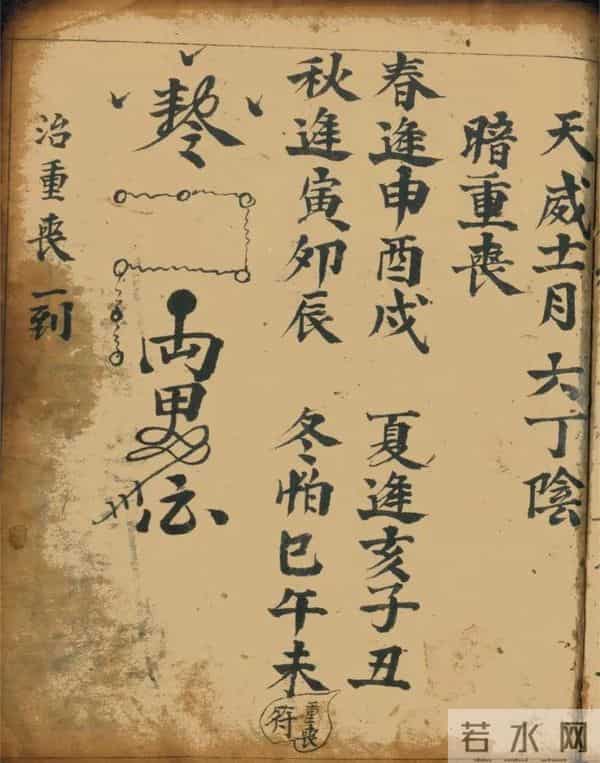 天威士月 六丁陰
暗重喪
春逢申酉戌 夏逢亥子丑
秋逢寅卯辰 冬怕巳午未
重喪符
治重喪一到
若水网